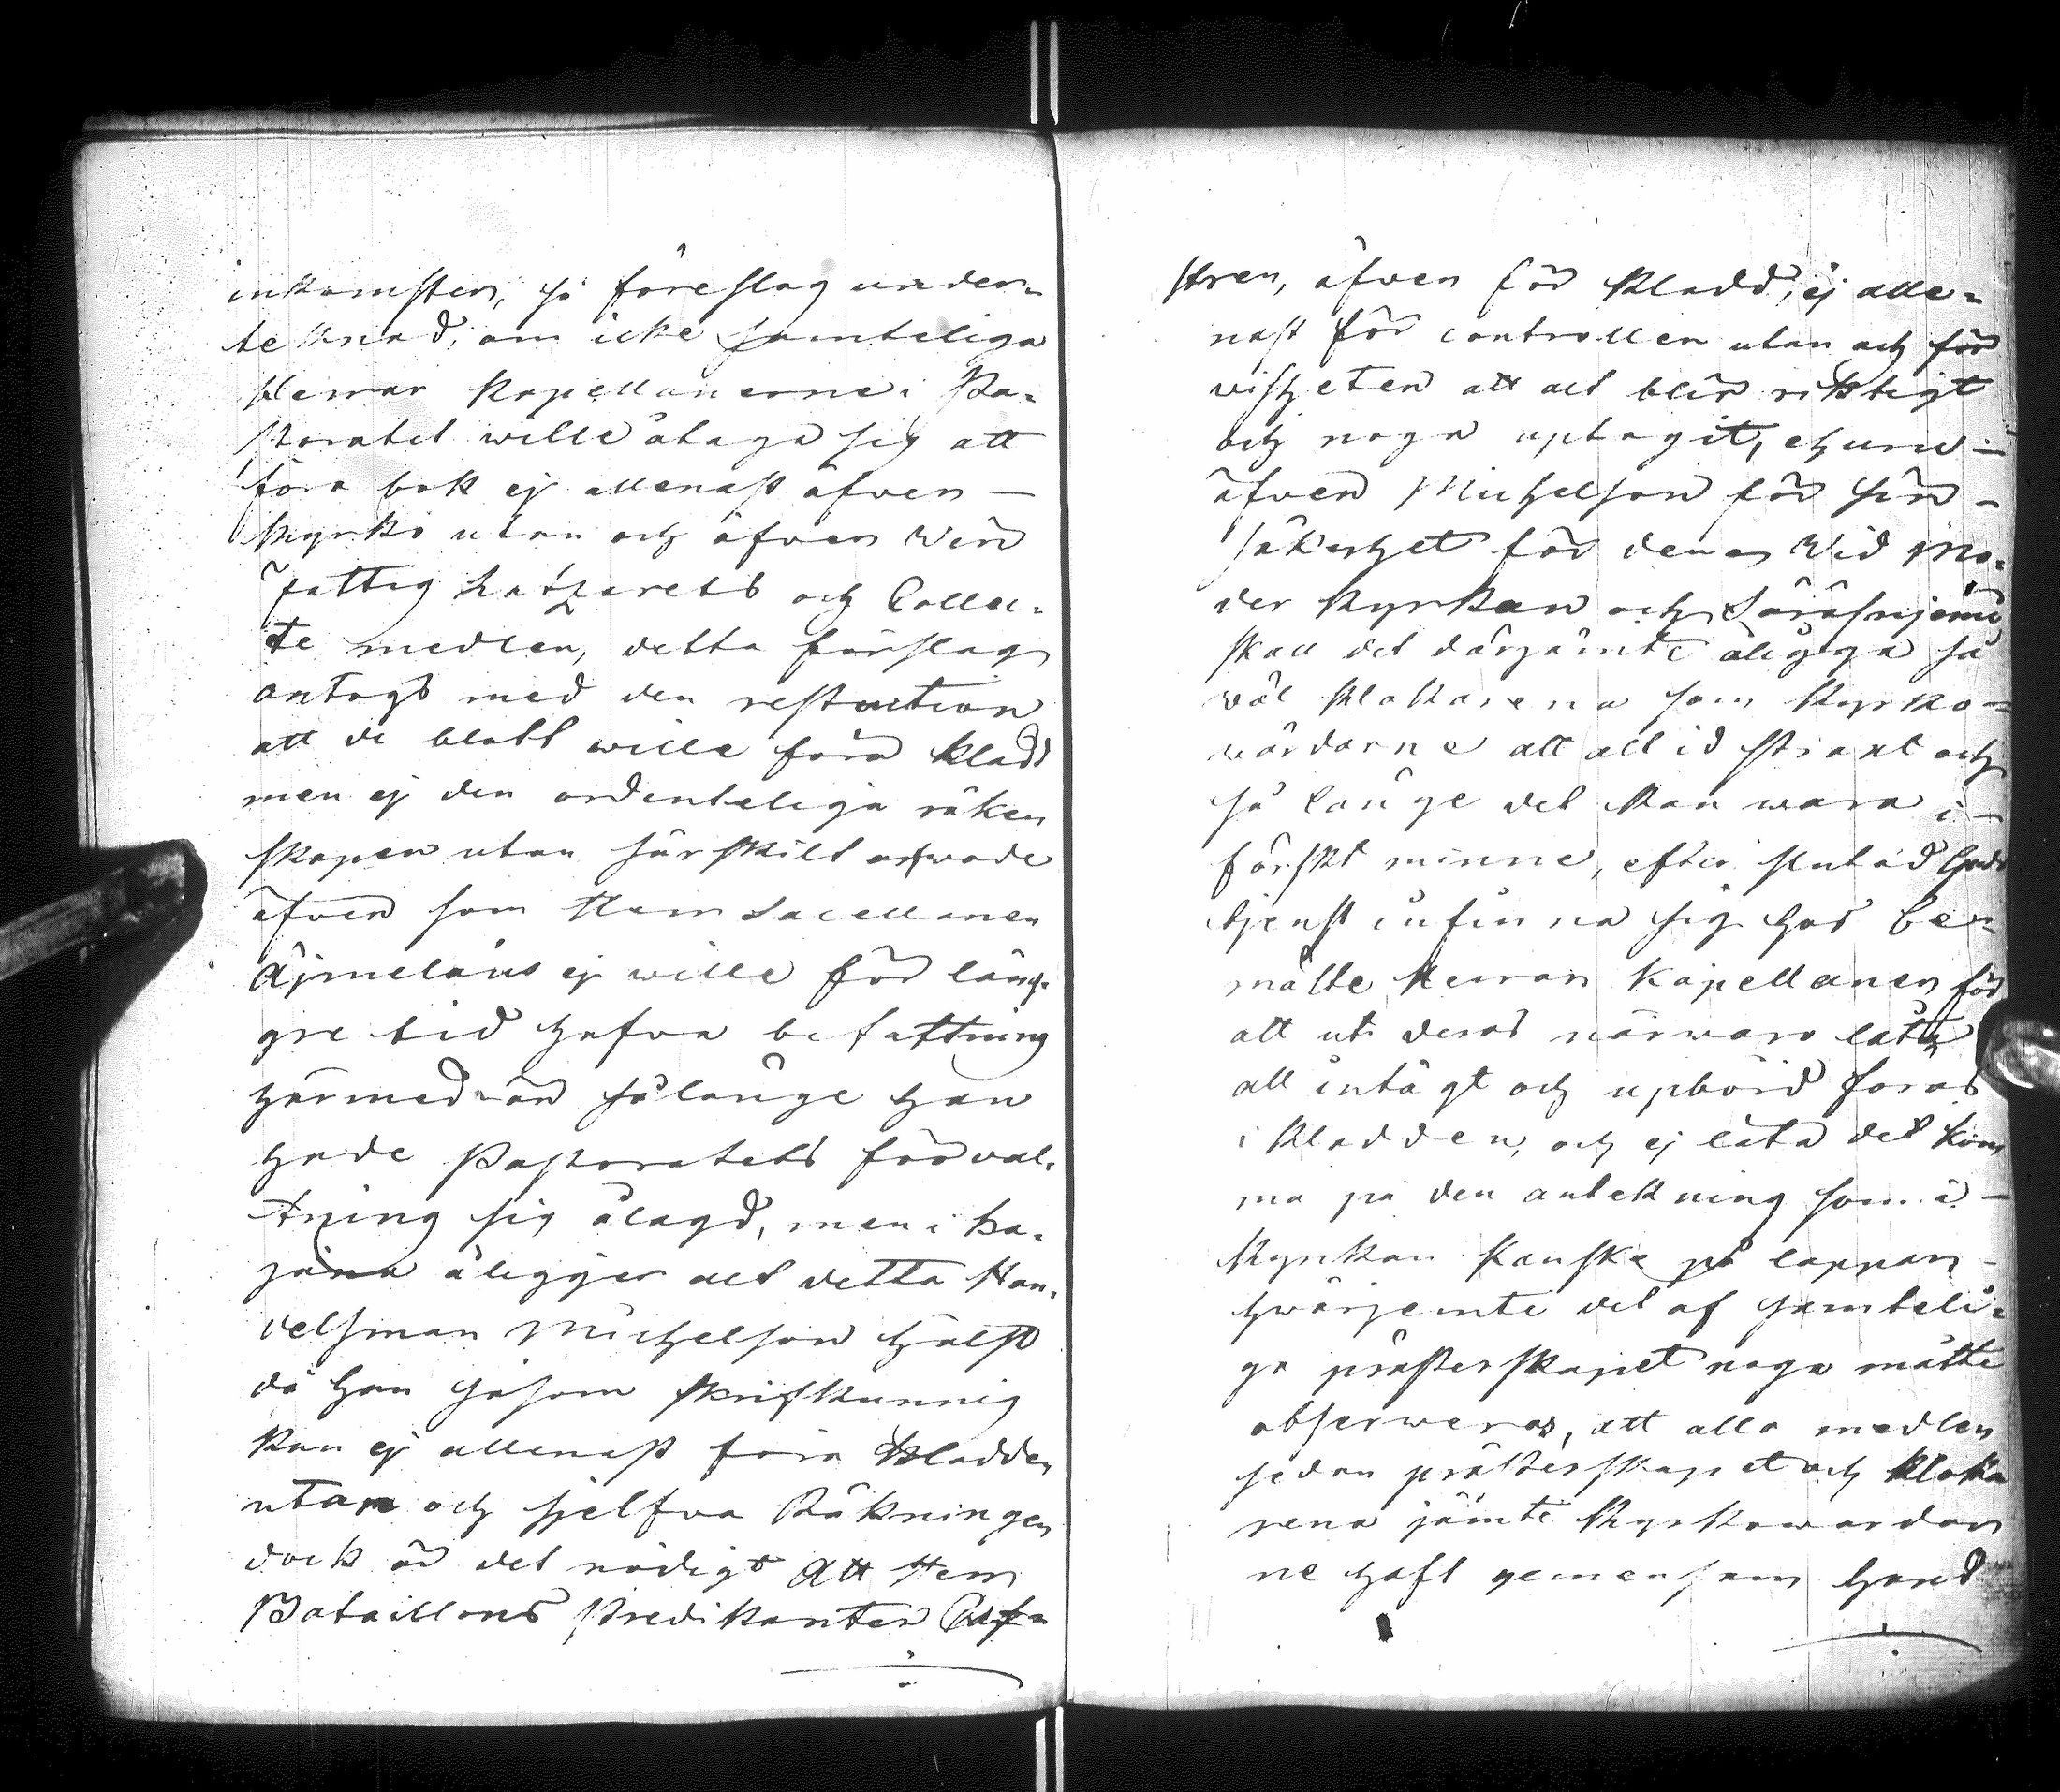 inkomsten, så föreslog under-
teknad, om icke samteliga
Herrar Kapellanerne i Pa-
storatet wille åtaga sig att
föra bok ej allenast äfwen —
kyrko utan och äfwen Win
fattig Latzarets och Collec-
te medlen, detta förslag
antogs med den restriction
att de blott wille föra kladd
men ej den ordenteliga räken
skapen utan särskilt
äfwen som Herr Sacellanen
Ajmelæus ej wille för läng-
gre tid hafva befattning
härmed än sålänge han
hade Pastoratets förval-
tning sig ålagd, men i Ha-
jana åligger det detta Han-
delsman Michelson hälst
då han såsom skrifkunnig
kan ej allenast föra kladden
utan och sjelfva Räkningen
dock är det nödigt att Herr
Bataillons Predikanten
stren, äfven för kladd, ej alle-
nast för controllen utan och för
wisheten att det blir riktigt
och noga uptagit, ehuru —
äfven Michelson för sin —
säkerhet för denen Wid Mo-
der kyrkan och
skall det därjämte åligga så
wäl klokarena som kyrko-
wärdarne att altid straxt och
så länge det kan wara i —
färskt minne, efter slutad Guds
tjenst infinna sig hos be-
mälte Herrar Kapellanen för
att uti deras närwaro låta
all intägt och upbörd föras
i Kladden, och ej låta det kom
ma på den antekning som i —
kyrkan kanske på lappar —
hwarjemte det af samteli-
ga prästerskapet noga måtte
observeras, att alla medlen
sedan prästerskapet och kloka
rena jämte Kyrkowärdar
ne haft gemensam hand